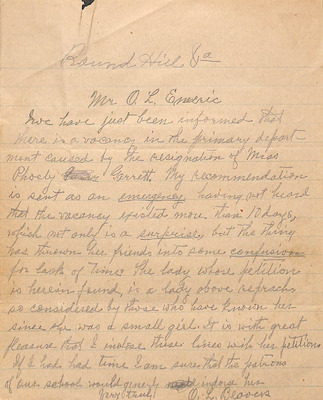 Round Hill Va
Mr O. L. Emeric
We have just been informed that
there is a vacancy in the primary depart-
ment caused by the resignation of Miss
Phoely Garrett. My recommendation
is sent as an emergency having not heard
that the vacancy existed more than 10 days,
which not only is a surprise, but the thing
has thrown her friends into some confusion
for lack of time. The lady whose petition
is herein found, is a lady above reproach
so considered by those who have known her
since she was a small girl. It is with great
pleasure that I inclose these lines with her petitions
If I had had time I am sure that the patrons
of our school would endorse her
Very truly
O. L. Beavers